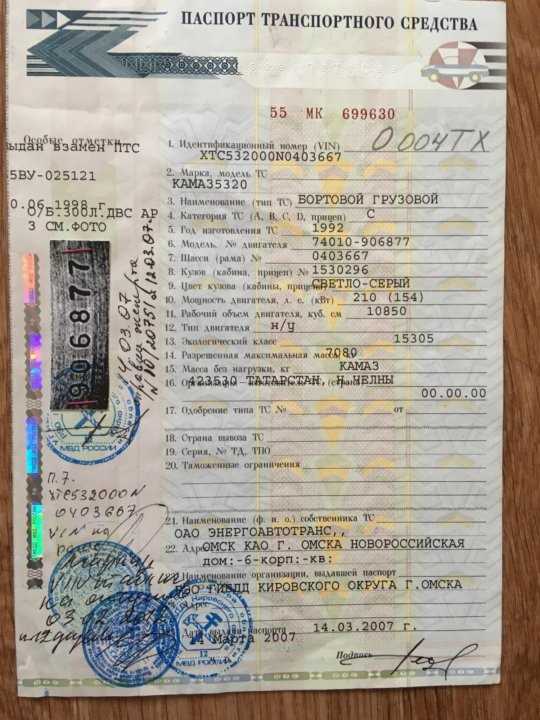 ПАСПОРТ ТРАНСПОРТНОГО СРЕДСТВА
55 МК 699630
Особые отметки
выдан взамен ПТС
55ВУ-025121
0.06.1998 г.
О/Б.300Л.ДВС АР
3 СМ.ФОТО
906877
1. Идентификационный номер (VIN)
О 004 ТХ
XTC532000N0403667
2. Марка, модель ТС
КАМАЗ5320
3. Наименование (тип ТС) БОРТОВОЙ ГРУЗОВОЙ
4. Категория ТС (А, В, С, D, прицеп) С
5. Год изготовления ТС 1992
6. Модель, № двигателя 74010-906877
7. Шасси (рама) № 0403667
8. Кузов (кабина, прицеп) № 1530296
9. Цвет кузова (кабины, прицепа) СВЕТЛО-СЕРЫЙ
10. Мощность двигателя, л. с. (кВт) 210 (154)
11. Рабочий объем двигателя, куб. см 10850
12. Тип двигателя н/у
13. Экологический класс
15305
14. Разрешенная максимальная масса, кг
7080
15. Масса без нагрузки, кг
КАМАЗ
16.
423530 ТАТАРСТАН, Н.ЧЕЛНЫ
00.00.00
17. Одобрение типа ТС № от
18. Страна вывоза ТС
19. Серия, № ТД, ТПО
20. Таможенные ограничения
21. Наименование (ф. и. о.) собственника ТС
ОАО ЭНЕРГОАВТОТРАНС,,
22. Адрес
ОМСК КАО Г. ОМСКА НОВОРОССИЙСКАЯ
дом:-6-корп:-кв:
Наименование организации, выдавшей паспорт
ГИБДД КИРОВСКОГО ОКРУГА Г.ОМСКА
Адрес
Дата выдачи паспорта 14.03.2007 г.
Марта 2007
Подпись
МВД РОССИИ
п. 7.
XTC532000N
0403667
VIN на
раме
12
МВД РОССИИ